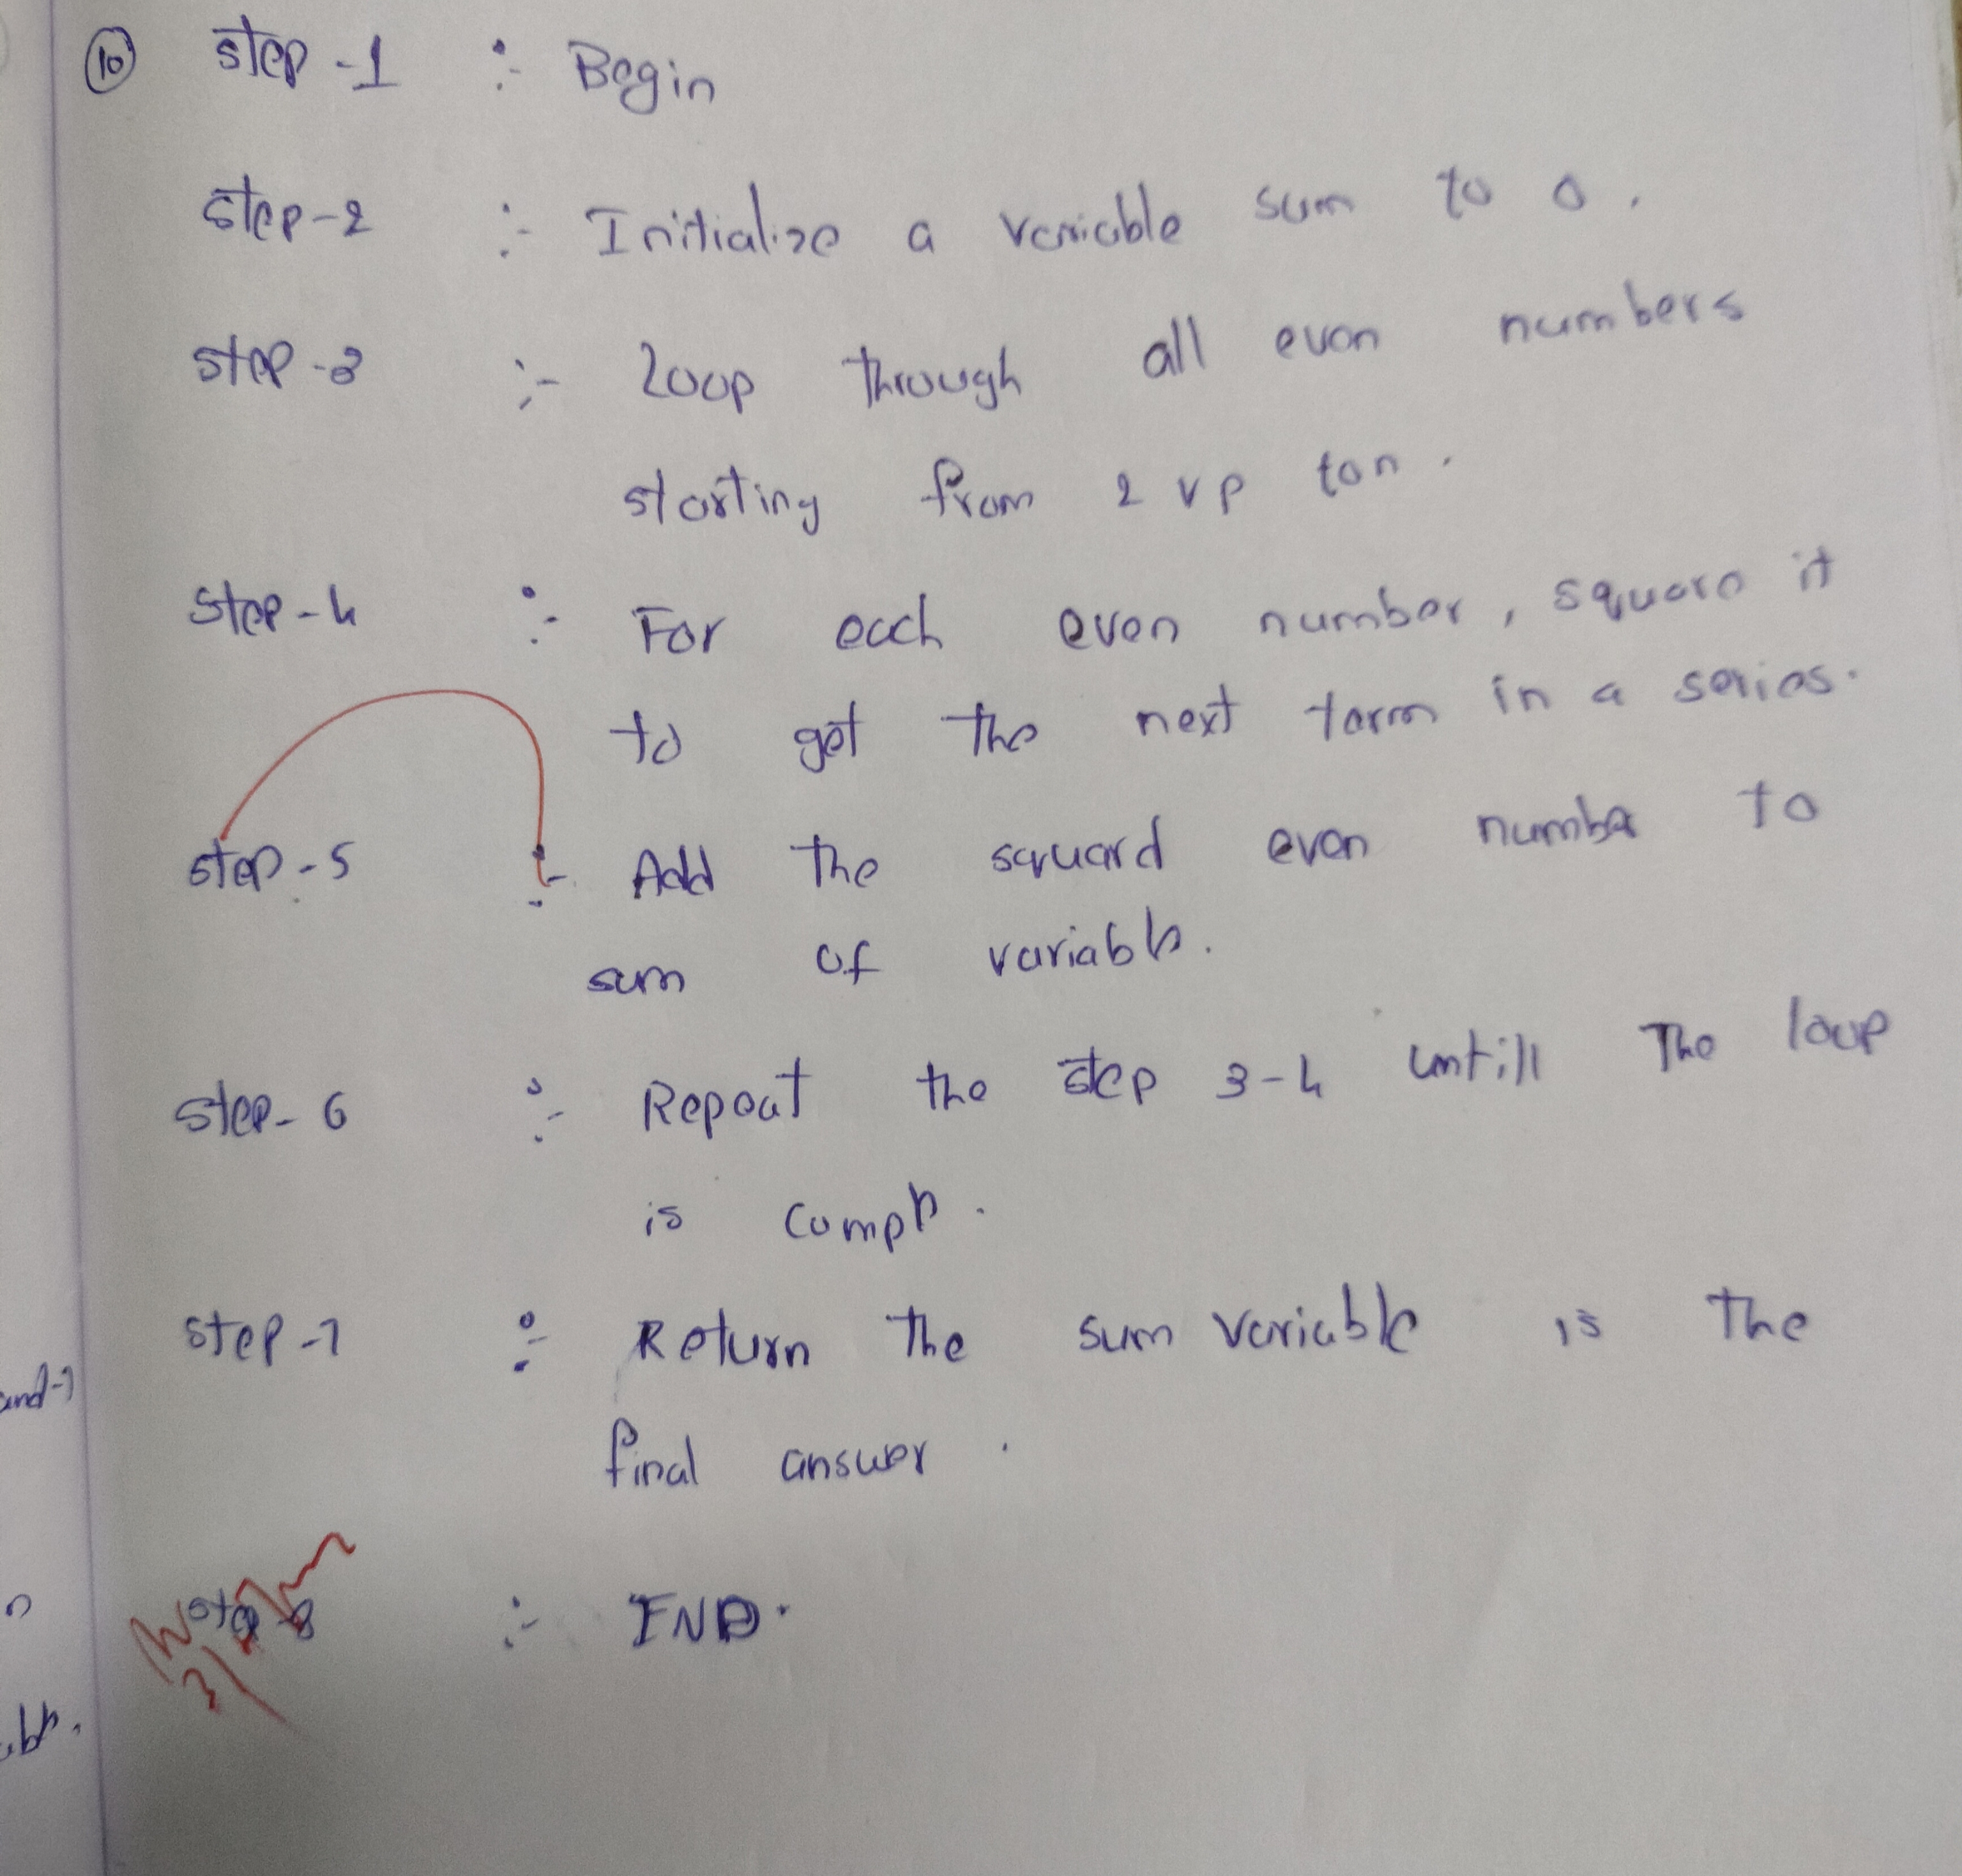 10 Step-1 :- Begin
Step-2 :- Initialize a variable sum to 0.
Step-3 :- Loop through all even numbers
starting from 2 up to n.
Step-4 :- For each even number, square it
to get the next term in a series.
Step-5 :- Add the squard even number to
sum of variable.
Step-6 :- Repeat the step 3-4 untill the loop
is comple.
Step-7 :- Return the sum variable is the
final answer.
Step-8 :- END.